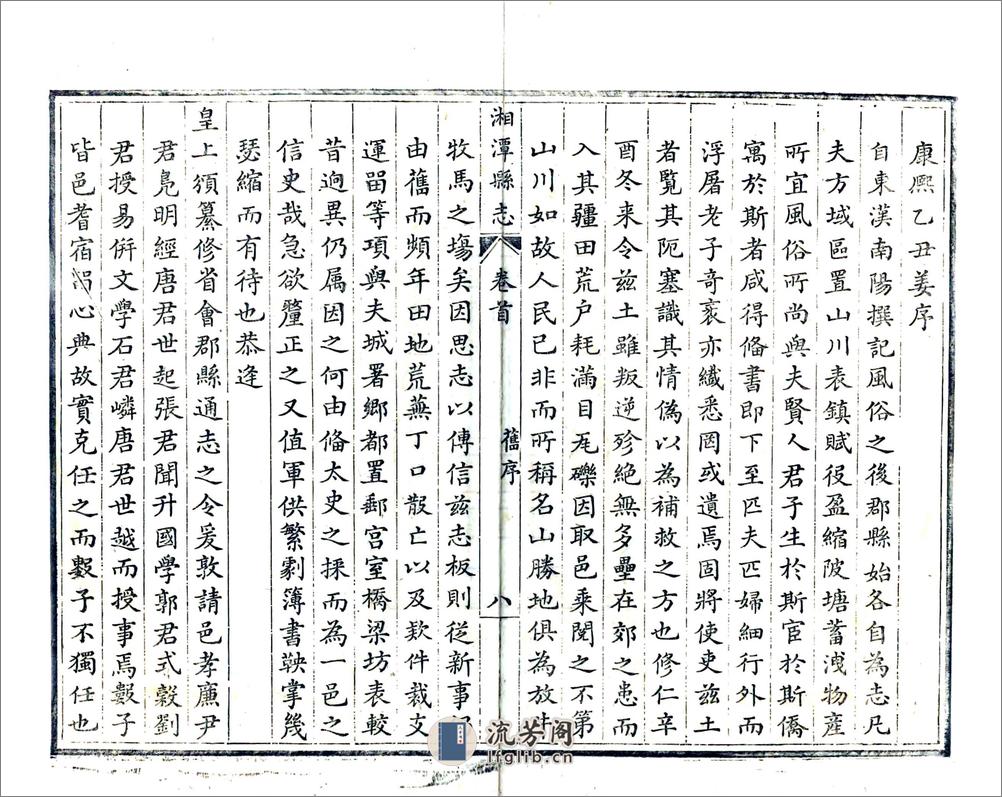 康熙乙丑姜序
自東漢南陽撰記風俗之後郡縣始各自為志凡
夫方域區置山川表鎮賦役盈縮陂塘蓄洩物產
所宜風俗所尚與夫賢人君子生於斯宦於斯僑
寓於斯者咸得俻書即下至匹夫匹婦細行外而
浮屠老子奇衺亦纖悉罔或遺焉固將使吏茲土
者覽其阨塞識其情偽以為補救之方也修仁辛
酉冬来令茲土雖叛逆殄絕無多壘在郊之患而
入其疆田荒户耗滿目瓦礫因取邑乘閱之不第
山川如故人民已非而所稱名山勝地俱為放牛
湘潭縣志 卷首 舊序 八
牧馬之塲矣因思志以傳信茲志板則従新事
由舊而頻年田地荒蕪丁口散亡以及欵件裁支
運留等項與夫城署鄉都置郵宫室橋梁坊表較
昔逈異仍属因之何由俻太史之採而為一邑之
信史哉急欲釐正之又值軍供繁劇簿書鞅掌幾
瑟縮而有待也恭逢
皇上頒纂修省會郡縣通志之令爰敦請邑孝廉尹
君鳧明經唐君世起張君聞升國學郭君式穀劉
君授易倂文學石君嶙唐君世越而授事焉數子
皆邑耆宿畱心典故實克任之而數子不獨任也
流芳阁
lfglib.cn